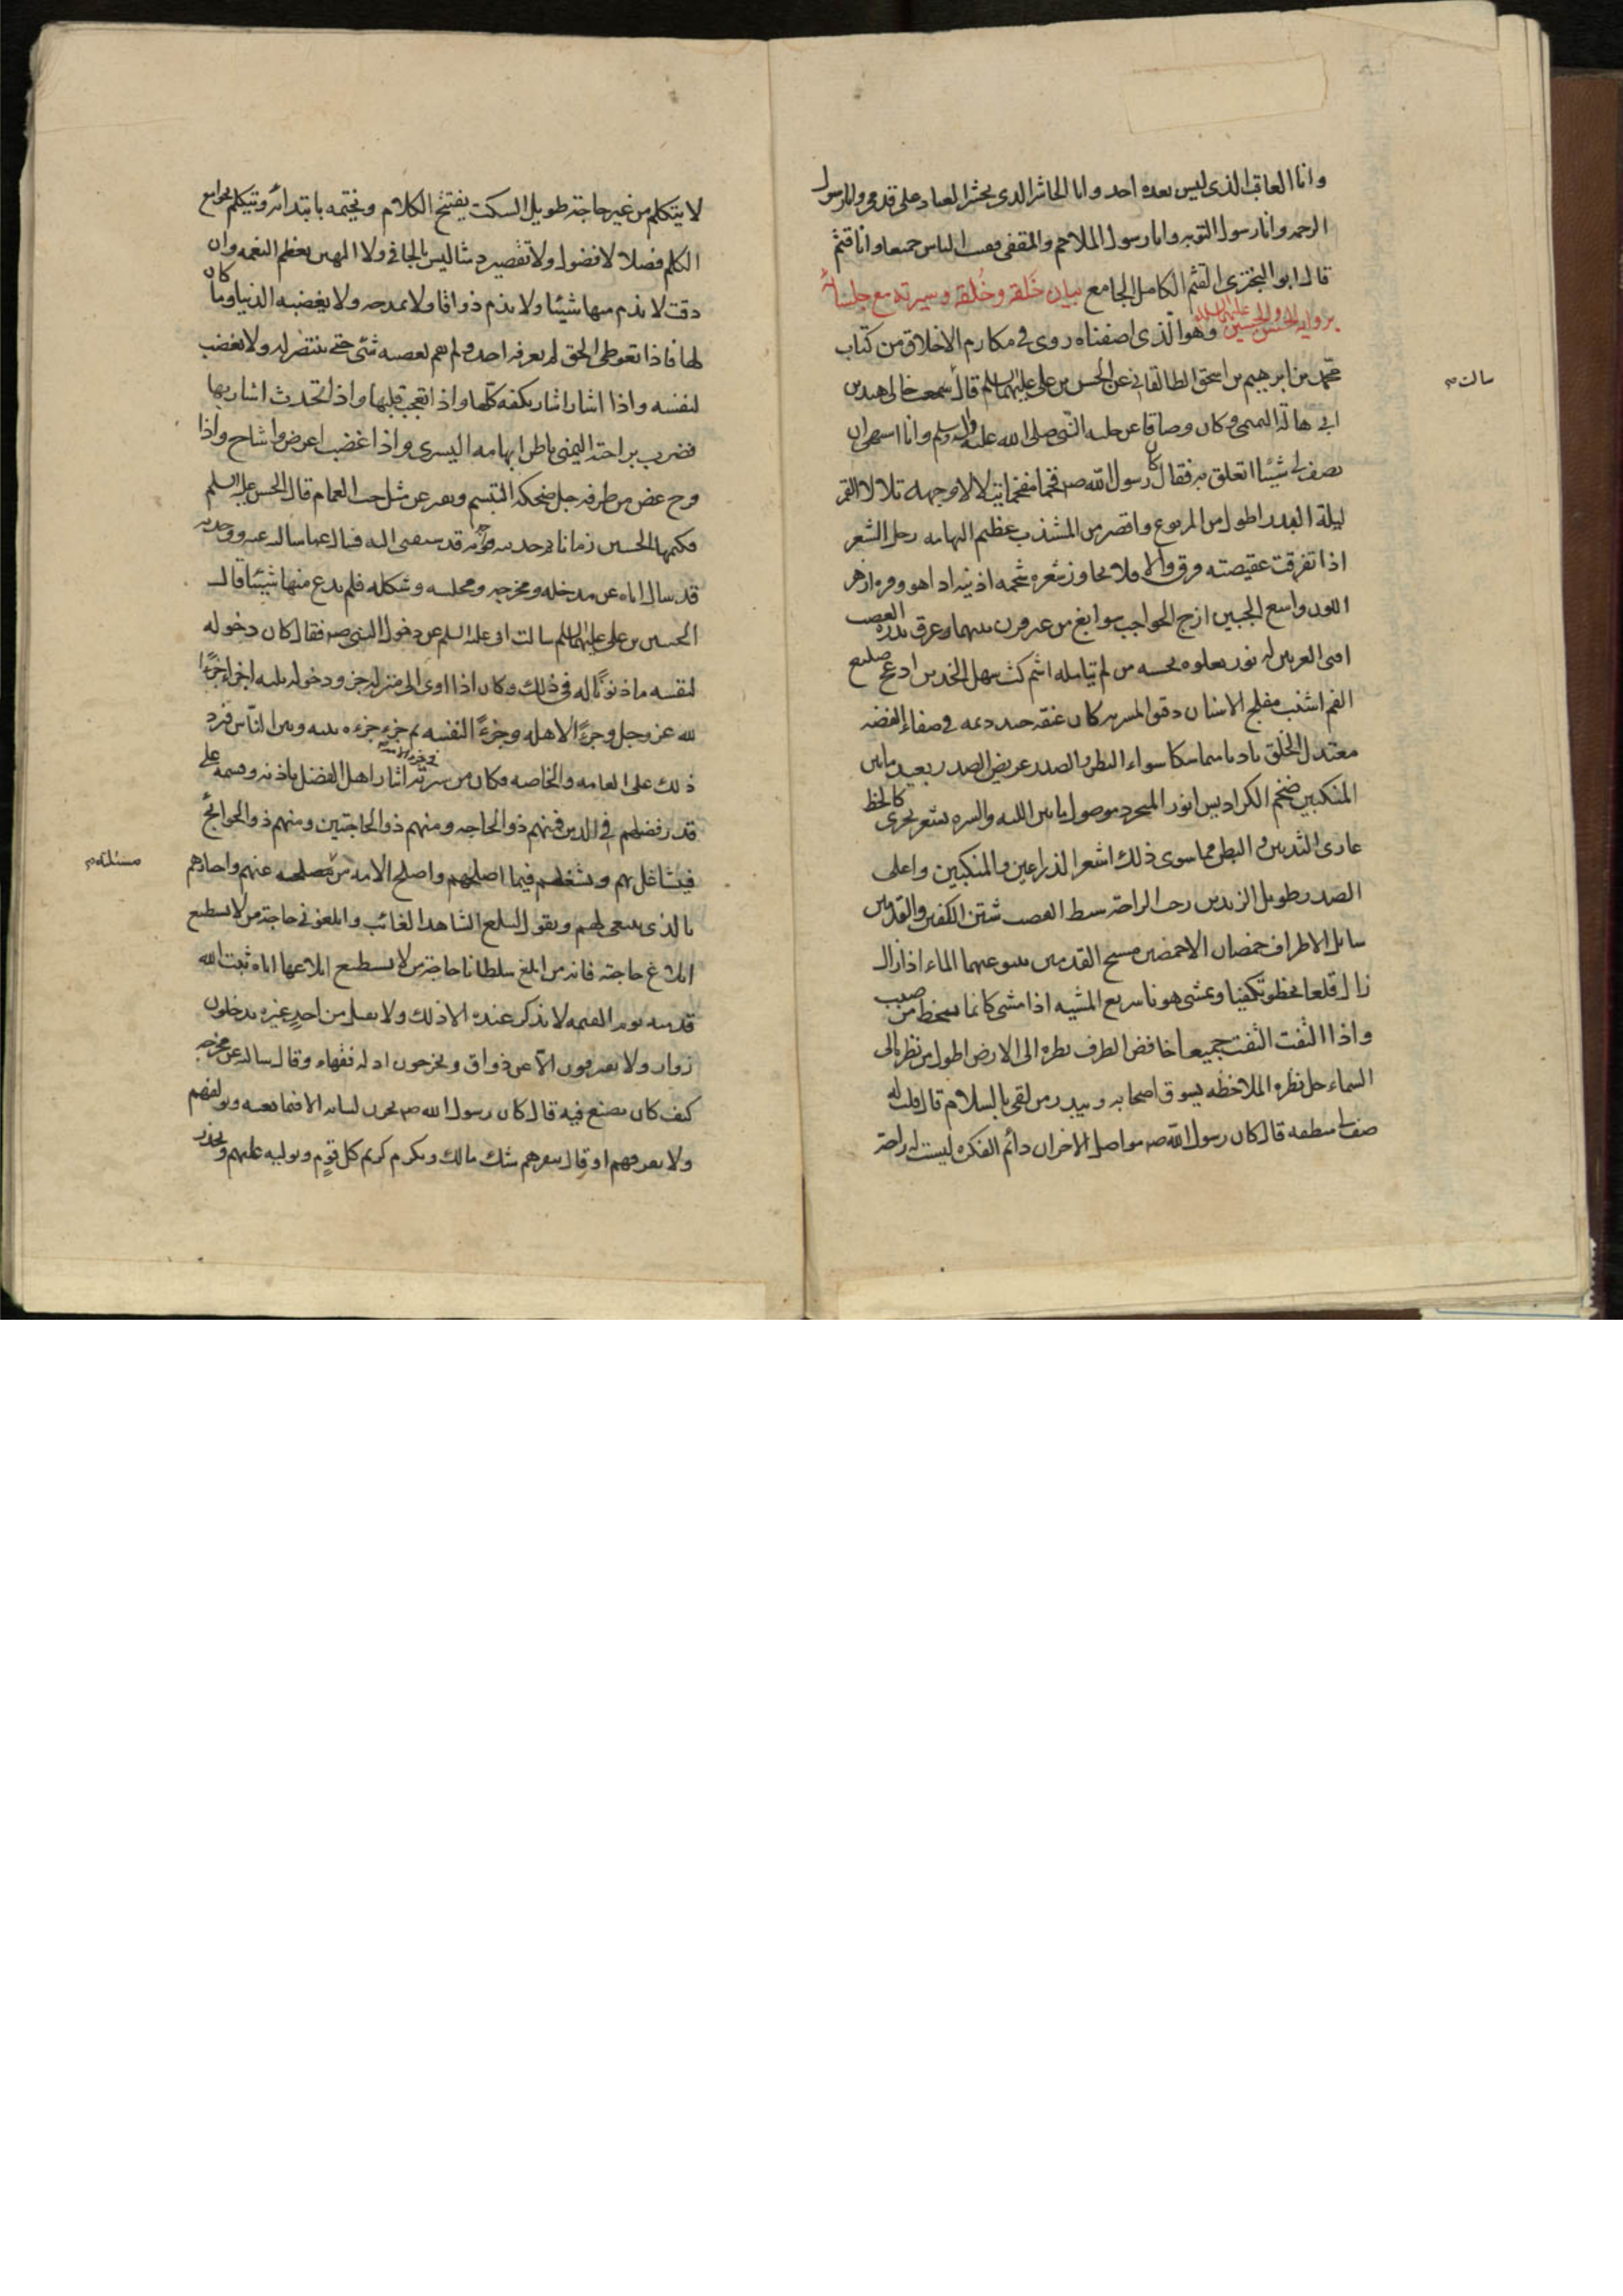 وانا العاقب الذى ليس بعده احد وانا الحاشر الذى يحشر العباد على قدمى وانا رسول
الرحمه وانا رسول التوبه وانا رسول الملاحم والمقفى قفيت الناس جميعا وانا قثم
قال ابو البخترى القثم الكامل الجامع بيان خَلقه وخُلقه وسيرته مع جلسائه
بروايه الحسن والحسين عليهما السلام وهو الّذى اضفناه روى فى مكارم الاخلاق من كتاب
محمّد بن ابرهيم بن اسحق الطالقانى عن الحسن بن على عليهما السلم قال سمعت خالى هند بن
سالت
ابى هالة التميمى وكان وصافا عن حليه النّبى صلى الله عليه واله وسلم وانا اشتهى ان
يصف لى شيئا اتعلق به فقال كان رسول الله ص فخما مفخما يتلالا وجهه تلالا القمر
ليلة البدر اطول من المربوع واقصر من المشذب عظيم الهامه رجل الشعر
اذا تفرقت عقيصته فرق والا فلا يجاوز شعره شحمه اذنيه اذا هو وفره ازهر
اللون واسع الجبين ازج الحواجب سوابغ من غير قرن بينهما عرق يدره الغضب
اقنى العرنين له نور يعلوه يحسبه من لم يتامله اشم كث سهل الخدين ادعج ضليع
الفم اشنب مفلج الاسنان دقيق المسربه كان عنقه جيد دميه فى صفاء الفضه
معتدل الخلق بادنا متماسكا سواء البطن والصدر عريض الصدر بعيد ما بين
المنكبين ضخم الكراديس انور المتجرد موصول ما بين اللبه والسره بشعر يجرى كالخط
عارى الثديين والبطن مما سوى ذلك اشعر الذراعين والمنكبين واعلى
الصدر طويل الزندين رحب الراحة سبط القصب شثن الكفين والقدمين
سائل الاطراف خمصان الاخمصين مسيح القدمين ينبو عنهما الماء اذا زال
زال قلعا يخطو تكفيا ويمشى هونا سريع المشيه اذا مشى كانما ينحط من صبب
واذا التفت التفت جميعا خافض الطرف نظره الى الارض اطول من نظره الى
السماء جل نظره الملاحظه يسوق اصحابه ويبدر من لقى بالسلام قال قلت له
صف لى منطقه قال كان رسول الله ص متواصل الاحزان دائم الفكره ليست له راحة
لا يتكلم من غير حاجة طويل السكت يفتتح الكلام ويختمه بابتدائه ويتكلم بجوامع
الكلم فصلا لا فضول ولا تقصير دمثا ليس بالجافى ولا المهين يعظم النعمه وان
دقت لا يذم منها شيئا ولا يذم ذواقا ولا يمدحه ولا يغضبه الدنيا وما كان
لها فاذا تعوطى الحق لم يعرفه احد ولم يقم لغضبه شئى حتى ينتصر له ولا يغضب
لنفسه واذا اشار اشار بكفه كلّها واذا تعجب قلبها واذا تحدث اشار بها
فضرب براحته اليمنى باطن ابهامه اليسرى واذا غضب اعرض واشاح واذا
فرح غض من طرفه جل ضحكه التبسم ويفتر عن مثل حب الغمام قال الحسن عليه السلم
فكتمها الحسين زمانا ثم حدثته فوجدته قد سبقنى اليه فساله عما سالته عنه ووجدته
قد سال اباه عن مدخله ومخرجه ومجلسه وشكله فلم يدع منها شيئا قال
الحسين بن على عليهما السلم سالت ابى عليه السلم عن دخول النبى ص فقال كان دخوله
لنفسه ماذونًا له فى ذلك وكان اذا اوى الى منزله جزء ودخوله ثلثه اجزاء جزءًا
لله عز وجل وجزءًا لاهله وجزءًا لنفسه ثم جزء جزءه بينه وبين النّاس فيرد
ذلك على العامه والخاصه فكان من سيرته ايثار اهل الفضل باذنه وقسمه على
قدر فضلهم فى الدين فمنهم ذو الحاجه ومنهم ذو الحاجتين ومنهم ذو الحوائج
فيتشاغل بهم ويشغلهم فيما اصلحهم واصلح الامه من مصلحه عنهم واخبارهم
مسئلته
بالذى ينبغى لهم ويقول ليبلغ الشاهد الغائب وابلغونى حاجة من لا يستطيع
ابلاغ حاجته فانه من ابلغ سلطانا حاجة من لا يستطيع ابلاغها اياه ثبت الله
قدميه يوم القيمه لا يذكر عنده الا ذلك ولا يقبل من احد غيره يدخلون
زوار ولا يفترقون الّا عن ذواق ويخرجون ادله فقهاء وقال سالته عن مخرجه
كيف كان يصنع فيه قال كان رسول الله ص يخزن لسانه الا فيما يعنيه ويولفهم
ولا يفرقهم او قال ينفرهم شك مالك ويكرم كريم كل قوم ويوليه عليهم ويحذر